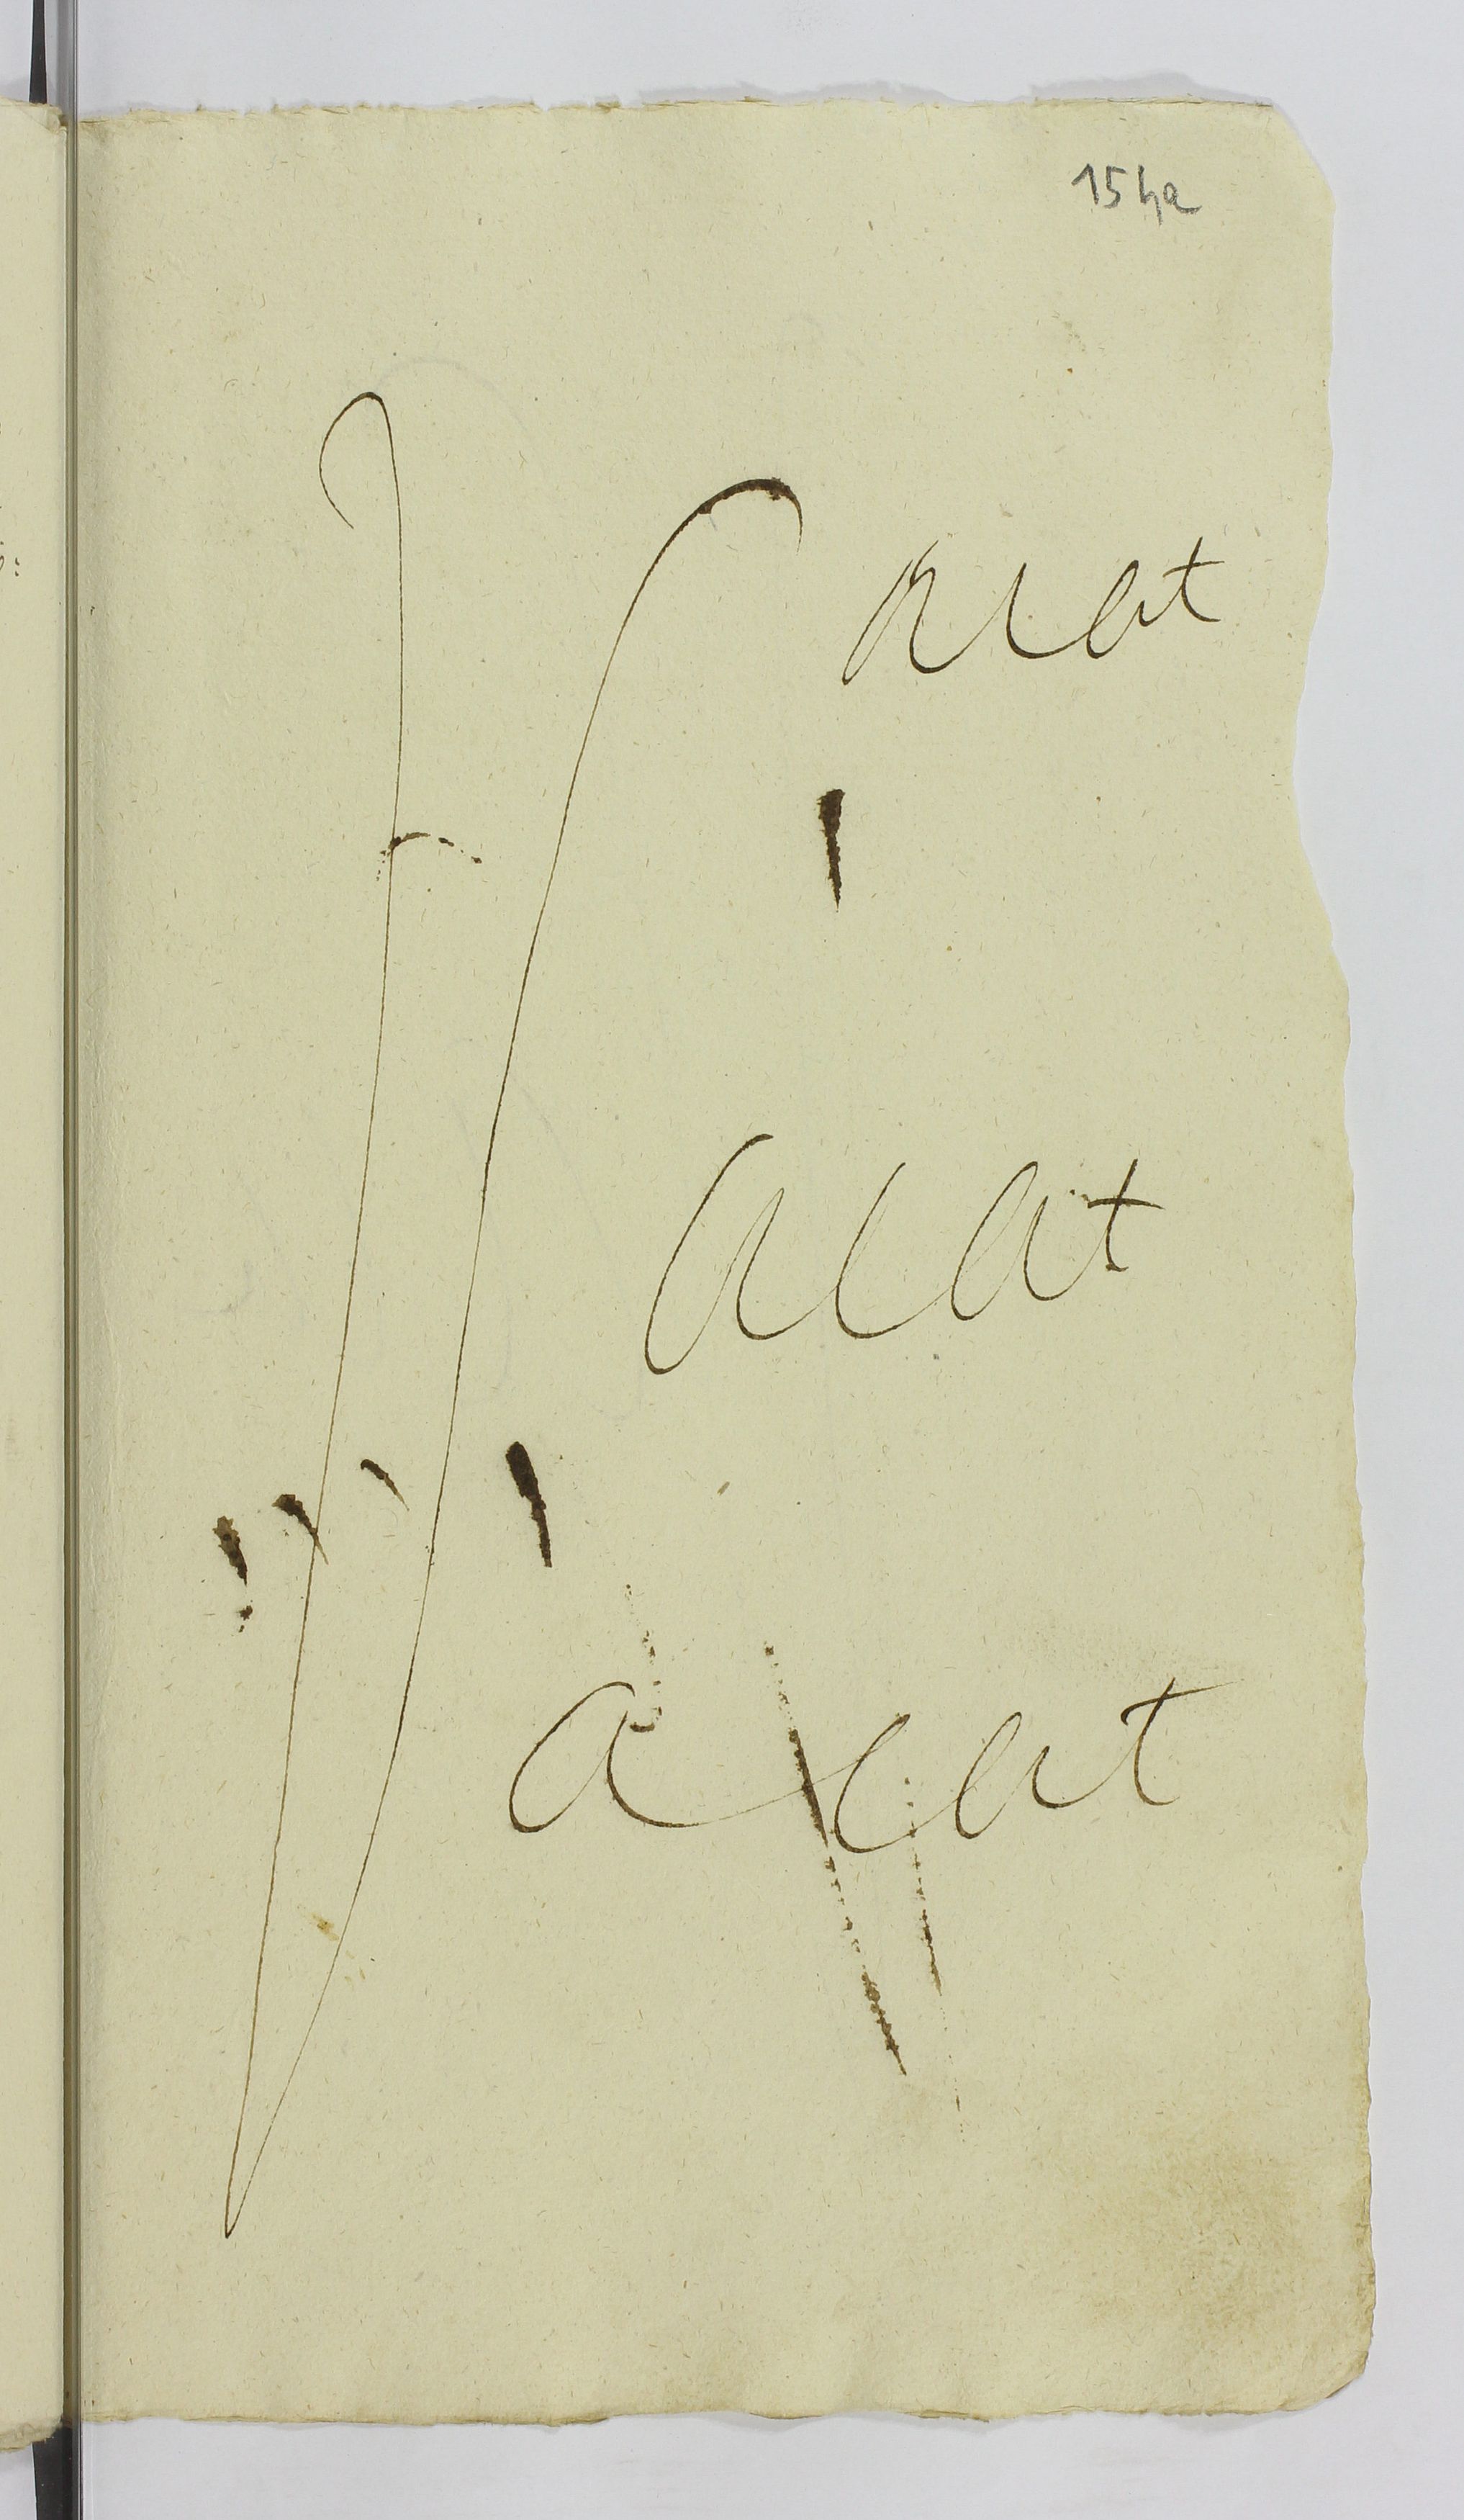 154a
vacat
vacat
vacat